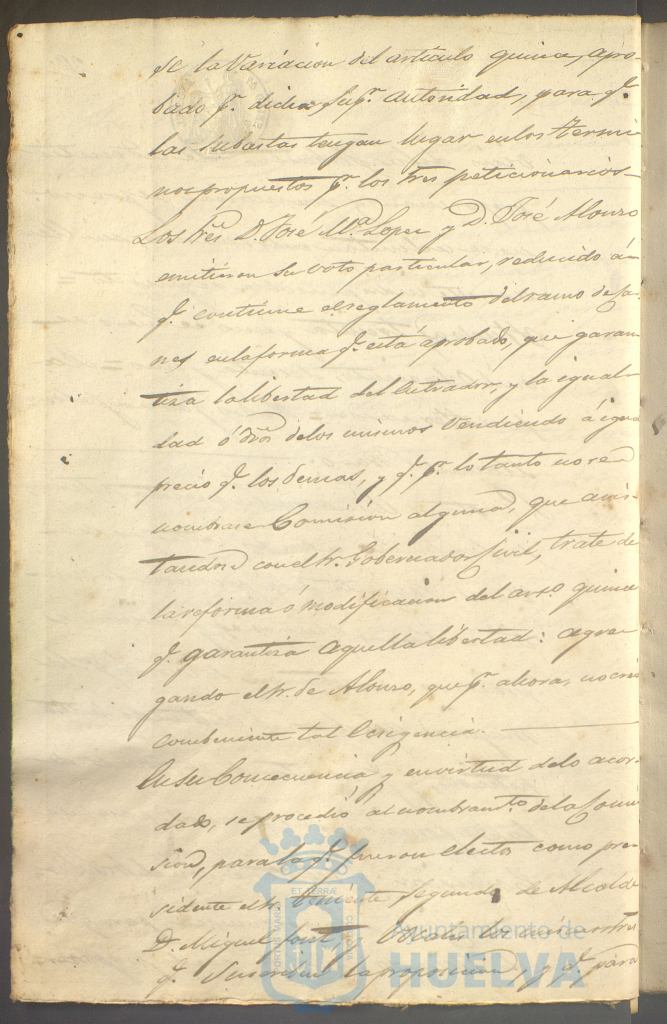 de la variacion del articulo quince, apro-
bado pr. dicha Supr. Autoridad, para qe.
las subastas tengan lugar en los termi-
nos propuestos pr. los tres peticionarios.
Los Sres. D. José Ma. Lopez y D. José Alonzo
emitieron su voto particular, reducido á
qe. continue el reglamento del ramo de Car-
nes en la forma qe. está aprobado, que garan-
tiza la libertad del entrador, y la igual-
dad ó dros de los mismos vendiendo á igual
precio qe. los demas, y qe. pr. lo tanto no se
nombrase Comision alguna, que avis-
tandose con el Sr. Gobernador Civil, trate de
la reforma ó modificacion del arto. quince
qe. garantiza aquella libertad: agre-
gando el Sr. de Alonzo, que pr. ahora, no cree
conbeniente tal exigencia.
En su Concecuencia y en virtud de lo acor-
dado, se procedió al nombramto. de la Comi-
sion, para la qe. fueron electos como pre-
sidente el Sr. Teniente Segundo de Alcalde
D. Miguel y Vocales los
qe. Suscriben la proposicion, y qe. para
Ayuntamiento de
HUELVA